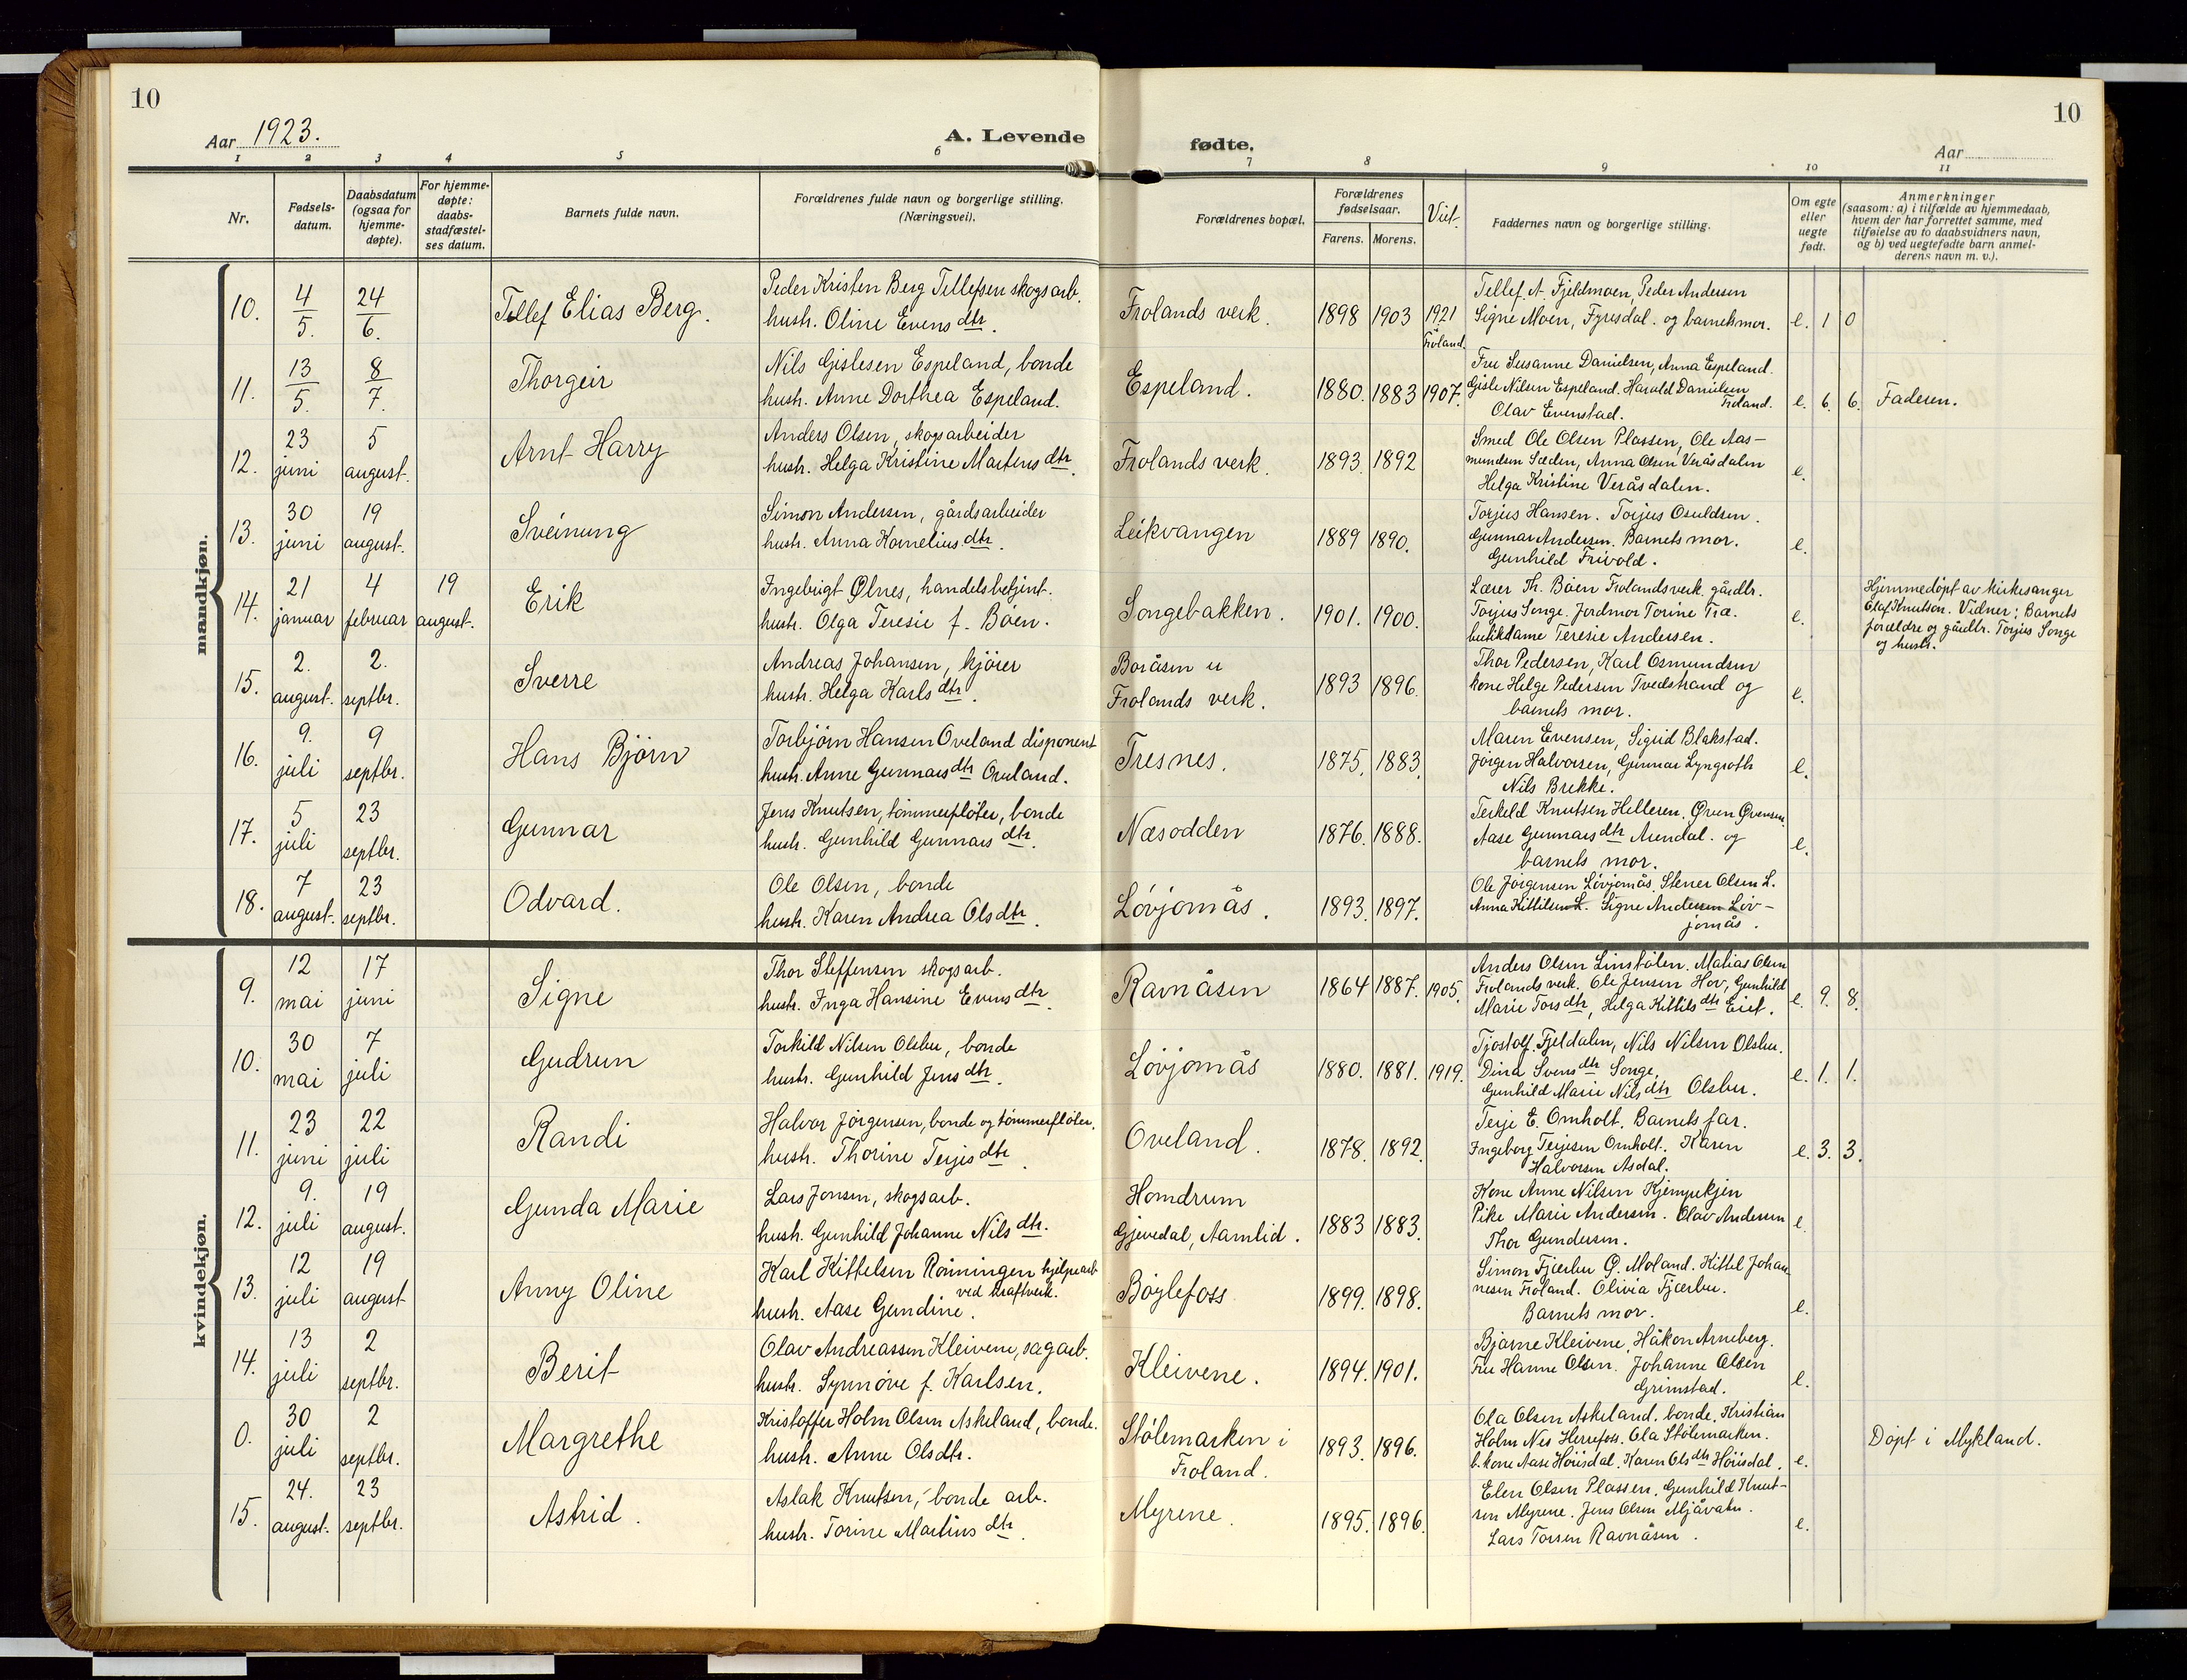 10
10
Aar 1923.
A. Levende
fødte.
Aar
1 2 3 4 5 6 7 8 9 10 11
Nr.
Fødsels-
datum.
Daabsdatum
(ogsaa for
hjemme-
døpte).
For hjemme-
døpte:
daabs-
stadfæstel-
ses datum.
Barnets fulde navn.
Forældrenes fulde navn og borgerlige stilling.
(Næringsvei).
Forældrenes bopæl.
Forældrenes
fødselsaar.
Farens. Morens.
Viet.
Faddernes navn og borgerlige stilling.
Om egte
eller
uegte
født.
Anmerkninger
(saasom: a) i tilfælde av hjemmedaab,
hvem der har forrettet samme, med
tilføielse av to daabsvidners navn,
og b) ved uegtefødte barn anmel-
derens navn m. v.).
mandkjøn.
10. 4/5. 24/6. Tellef Elias Berg.
Peder Kristen Berg Tellefsen skogsarb.
hustr. Oline Evensdtr.
Frolands verk. 1898 1903 1921 Froland.
Tellef A. Fjeldmoen, Peder Andersen
Signe Moen, Fyresdal. og barnets mor.
e. 1 0
11. 13/5. 8/7. Thorgeir
Nils Gislesen Espeland, bonde
hustr. Anne Dorthea Espeland.
Espeland. 1880. 1883 1907.
Fru Susanne Danielsen, Anna Espeland.
Gisle Nilsen Espeland. Harald Danielsen
Froland.
Olav Evenstad.
e. 6. 6. Faderen.
12. 23 juni 5 august. Arnt Harry
Anders Olsen, skogsarbeider
hustr. Helga Kristine Martensdtr.
Frolands verk. 1893. 1892
Smed Ole Olsen Plassen, Ole Aas-
mundsen Sæden, Anna Olsen Veråsdalen
Helga Kristine Veråsdalen.
e.
13. 30 juni 19 august. Sveinung
Simon Andersen, gårdsarbeider
hustr. Anna Korneliusdtr.
Leikvangen 1889 1890.
Torjus Hansen. Torjus Osuldsen.
Gunnar Andersen. Barnets mor.
Gunhild Frivold.
e.
14. 21 januar 4 februar 19 august. Erik
Ingebrigt Ølnes, handelsbetjent.
hustr. Olga Teresie f. Böen.
Songebakken. 1901. 1900.
Lærer Th. Böen Frolandsverk. gårdbr.
Torjus Songe. Jordmor Torine Træ.
butikdame Teresie Andersen.
e.
Hjemmedöpt av kirkesanger
Olaf Knutson. Vidner: Barnets
forældre og gårdbr. Torjus Songe
og hustr.
15. 2. august. 2. septbr. Sverre
Andreas Johansen, kjörer
hustr. Helga Karlsdtr.
Boråsen u
Frolands verk. 1893 1896.
Thor Pedersen, Karl Osmundsen
kone Helge Pedersen Tvedestrand og
barnets mor.
e.
16. 9. juli 9 septbr. Hans Björn
Torbjörn Hansen Oveland disponent
hustr. Anne Gunnarsdtr Oveland.
Tresnes. 1875. 1883.
Maren Evensen, Sigrid Blakstad.
Jörgen Halvorsen, Gunnar Lyngroth
Nils Brekke.
e.
17. 5 juli 23 septbr. Gunnar
Jens Knutsen, tömmerflöter, bonde
hustr. Gunhild Gunnarsdtr.
Næsodden 1876. 1888.
Terkeld Knutsen Helleren. Øven Øvensen.
Aase Gunnarsdtr Arendal. og
barnets mor.
e.
18. 7 august. 23 septbr. Odvard.
Ole Olsen, bonde
hustr. Karen Andrea Olsdtr.
Lövjomås. 1893. 1897.
Ole Jörgensen Lövjomås. Stener Olsen L.
Anna Kittilsen L. Signe Andersen Löv-
jomås.
kvindekjøn.
9. 12 mai 17 juni Signe
Thor Steffensen skogsarb.
hustr. Inga Hansine Evensdtr.
Ravnåsen 1864 1887. 1905.
Anders Olsen Linstölen. Matias Olsen
Frolands verk. Ole Jensen Hov, Gunhild
Marie Torsdtr, Helga Kittilsdtr Eiet.
e. 9. 8.
10. 30 mai 7 juli Gudrun
Torkild Nilsen Olsbu, bonde
hustr. Gunhild Jensdtr.
Lövjomås 1880. 1881. 1919.
Tjostolf Fjeldalen, Nils Nilsen Olsbu.
Dina Svensdtr Songe.
Gunhild Marie Nilsdtr Olsbu.
e. 1. 1.
11. 23 juni 22 juli Randi
Halvor Jörgensen, bonde og tömmerflöter.
hustr. Thorine Terjesdtr.
Oveland. 1878. 1892.
Terje E. Omholt. Barnets far.
Ingeborg Terjesen Omholt. Karen
Halvorsen Asdal.
e. 3. 3.
12. 9. juli 19 august. Gunda Marie
Lars Jonsen, skogsarb.
hustr. Gunhild Johanne Nilsdtr.
Homdrum
Gjevedal, Aamlid. 1883 1883.
Kone Anne Nilsen Kjempekjen
Pike Marie Andersen. Olav Andersen
Thor Gundersen.
e.
13. 12 juli 19 august Anny Oline
Karl Kittelsen Rönningen hjelpearb
ved kraftverk.
hustr. Aase Gundine.
Böylefoss 1899. 1898.
Simon Fjærbu Ø. Moland. Kittil Johan-
nesen Froland. Olivia Fjærbu.
Barnets mor.
e.
14. 13 juli 2 septbr. Berit
Olav Andreassen Kleivene, sagarb.
hustr. Synnöve f. Karlsen.
Kleivene. 1894. 1901.
Bjarne Kleivene. Håkon Arneberg.
Fru Hanne Olsen. Johanne Olsen
Grimstad.
e.
0. 30 juli 2 septbr. Margrethe
Kristoffer Holm Olsen Askeland, bonde.
hustr. Anne Olsdtr.
Stölemarken i
Froland. 1893. 1896.
Ola Olsen Askeland. bonde. Kristian
Holm Nes Herefoss. Ola Stölemarken.
b. kone Aase Höirsdal. Karen Olsdtr Höirsdal.
e.
Döpt i Mykland.
15. 24. august. 23 septbr. Astrid.
Aslak Knutsen, bonde arb.
hustr. Torine Martinsdtr.
Myrene. 1895. 1896.
Elen Olsen Plassen. Gunhild Knut-
sen Myrene. Jens Olsen Mjåvatn.
Lars Torsen Ravnåsen.
e.